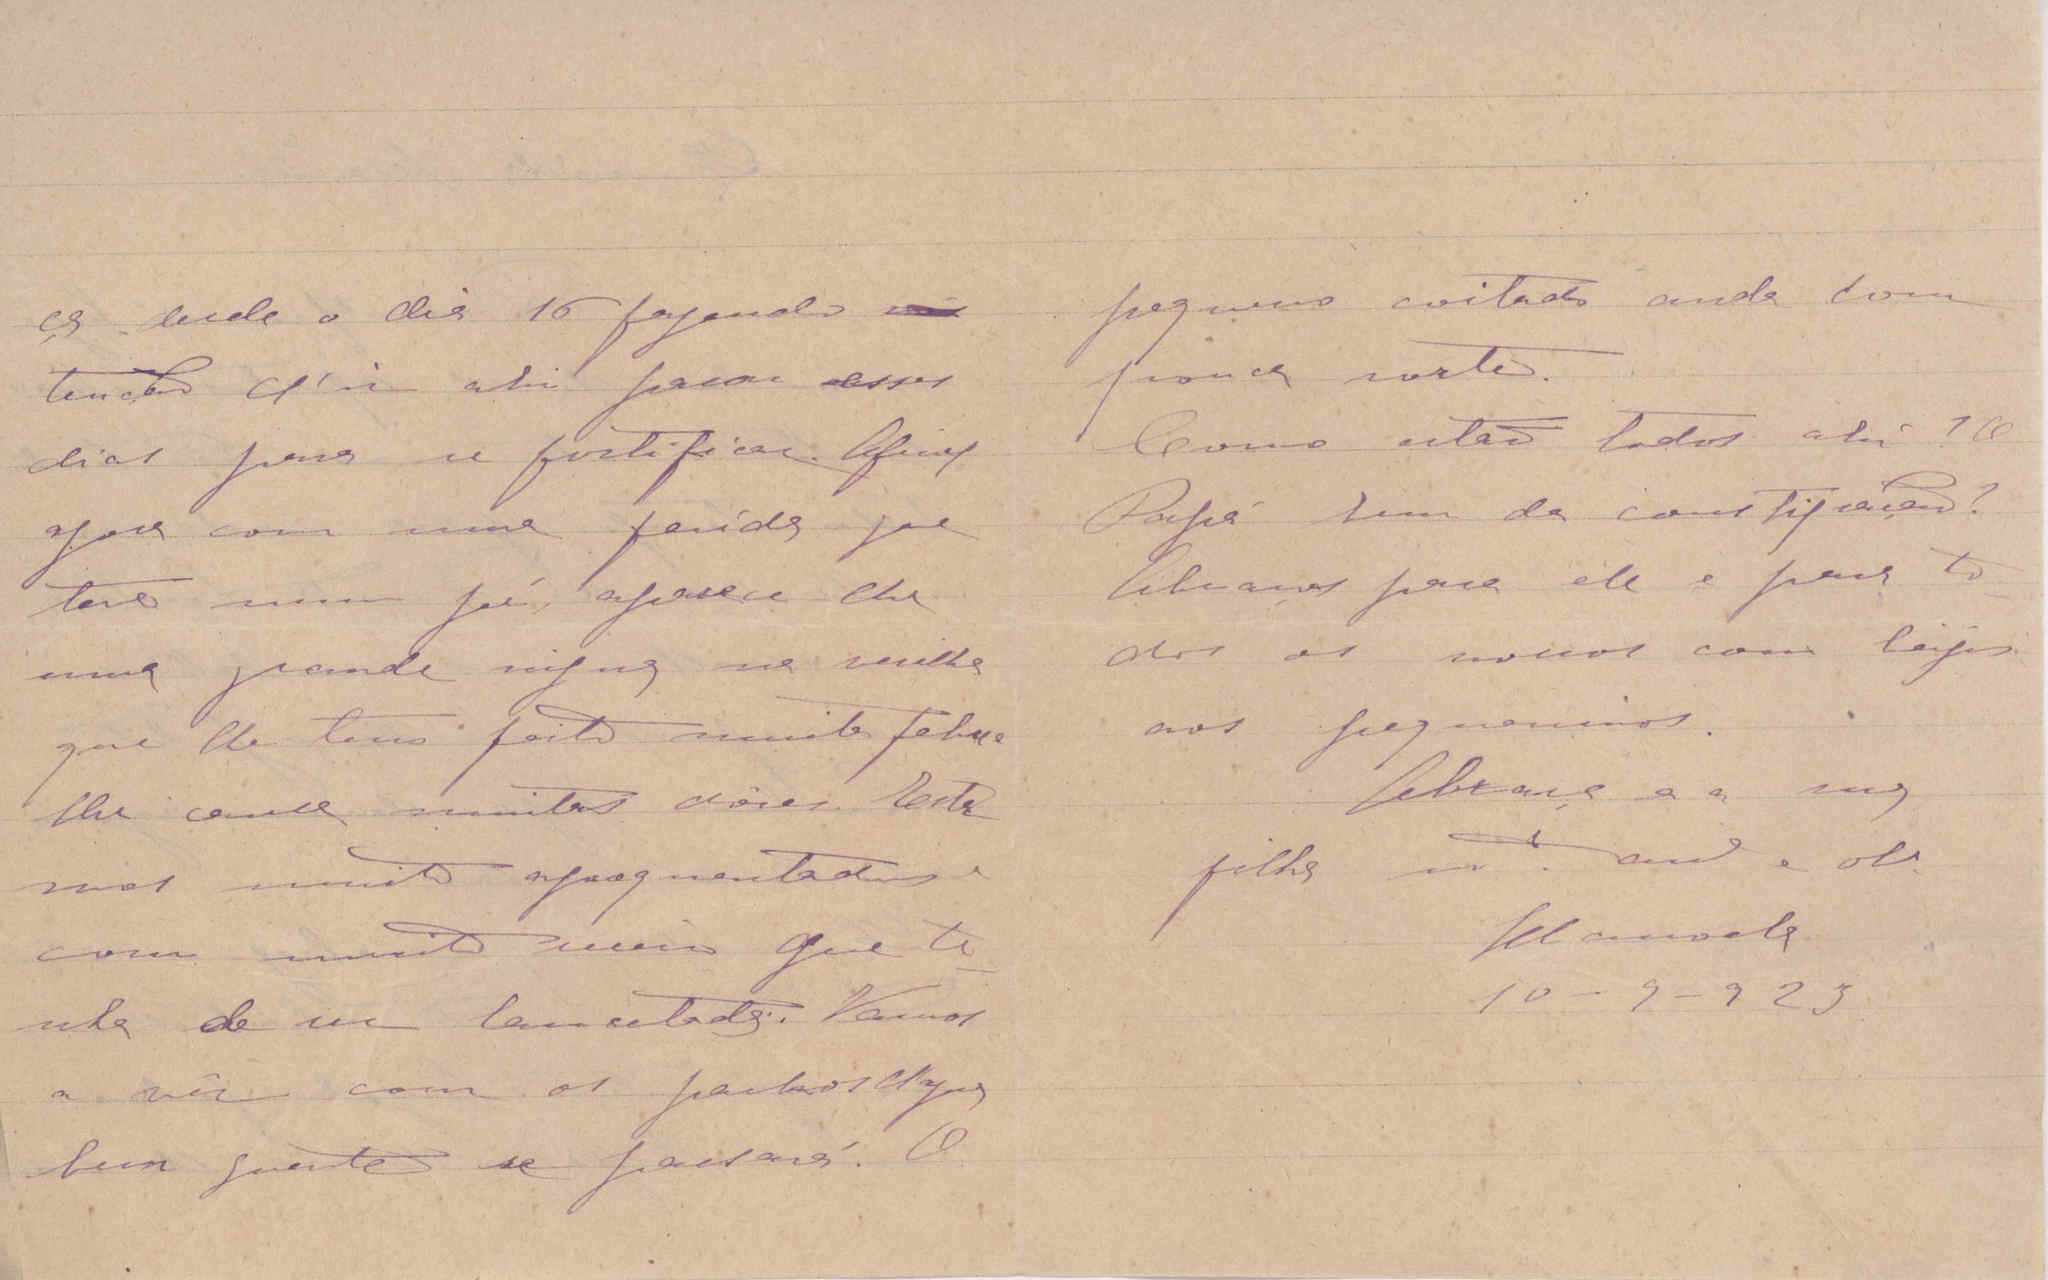 ça desde o dia 16 fazendo
tenção d'ir ahi passar esses
dias para se fortificar. Afinal
agora com uma ferida que
teve num pé, aparece lhe
uma grande ingua na virilha
que lhe tem feito muita febre e
lhe causa muitas dôres. Esta
mos muito apoquentados e
com muito receio que te
nha de ser lancetada. Vamos
a vêr com os pachos d'agua
bem quente se passará. O
pequeno coitado anda com
pouca sorte.
Como estão todos ahi? O
Papá bem da constipação?
Abraços para ele e para to-
dos os nossos com beijos
aos pequeninos.
Abraça a a sua
filha mt.º am.ª e ob.
Manoela
10-9-923